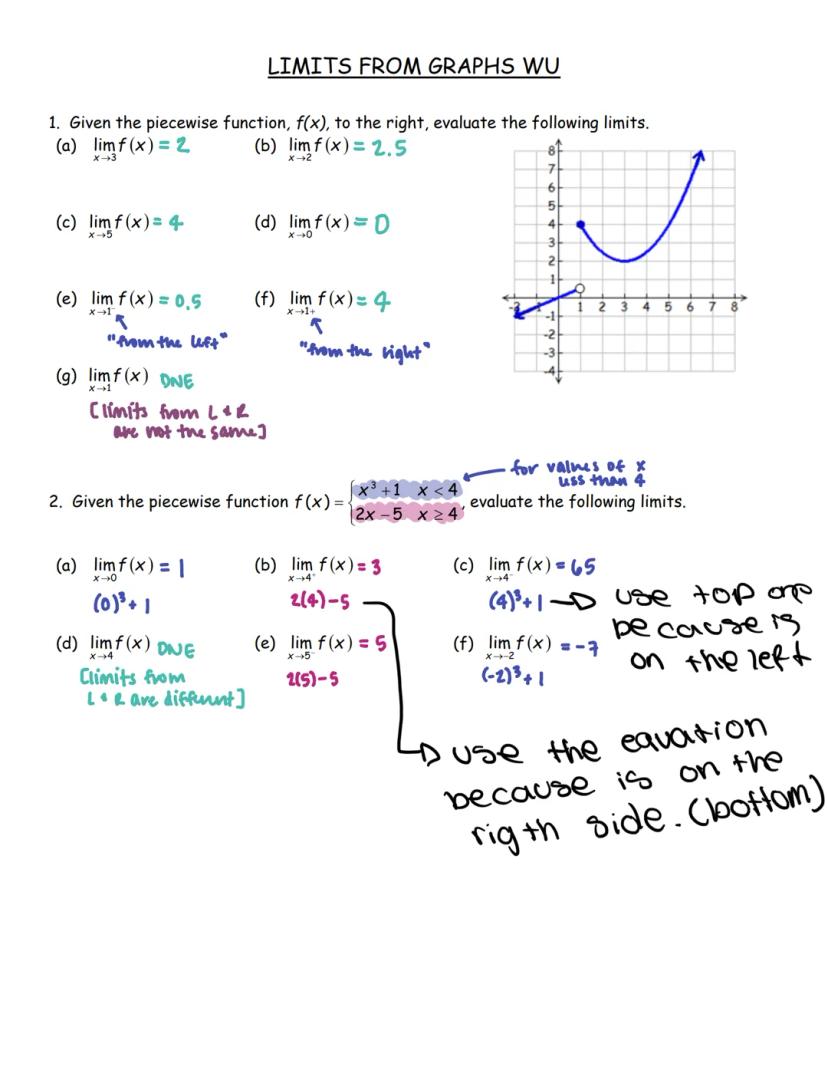 LIMITS FROM GRAPHS WU
1. Given the piecewise function, f(x), to the right, evaluate the following limits.
(a) lim x→3 f(x) = 2 (b) lim x→2 f(x) = 2.5
(c) lim x→5 f(x) = 4 (d) lim x→0 f(x) = 0
(e) lim x→1⁻ f(x) = 0.5 (f) lim x→1+ f(x) = 4
"from the left" "from the right"
(g) lim x→1 f(x) DNE
[limits from L & R
are not the same]
8
7
6
5
4
3
2
1
-2 -1 1 2 3 4 5 6 7 8
-1
-2
-3
-4
for values of x
less than 4
2. Given the piecewise function f(x) = { x³ + 1 x < 4
2x - 5 x ≥ 4 , evaluate the following limits.
(a) lim x→0 f(x) = 1 (b) lim x→4⁺ f(x) = 3 (c) lim x→4⁻ f(x) = 65
(0)³ + 1 2(4) - 5 (4)³ + 1 → use top one
because is
on the left
(d) lim x→4 f(x) DNE (e) lim x→5⁻ f(x) = 5 (f) lim x→-2 f(x) = -7
[limits from 2(5) - 5 (-2)³ + 1
L & R are different]
use the eauation
because is on the
rigth side. (bottom)